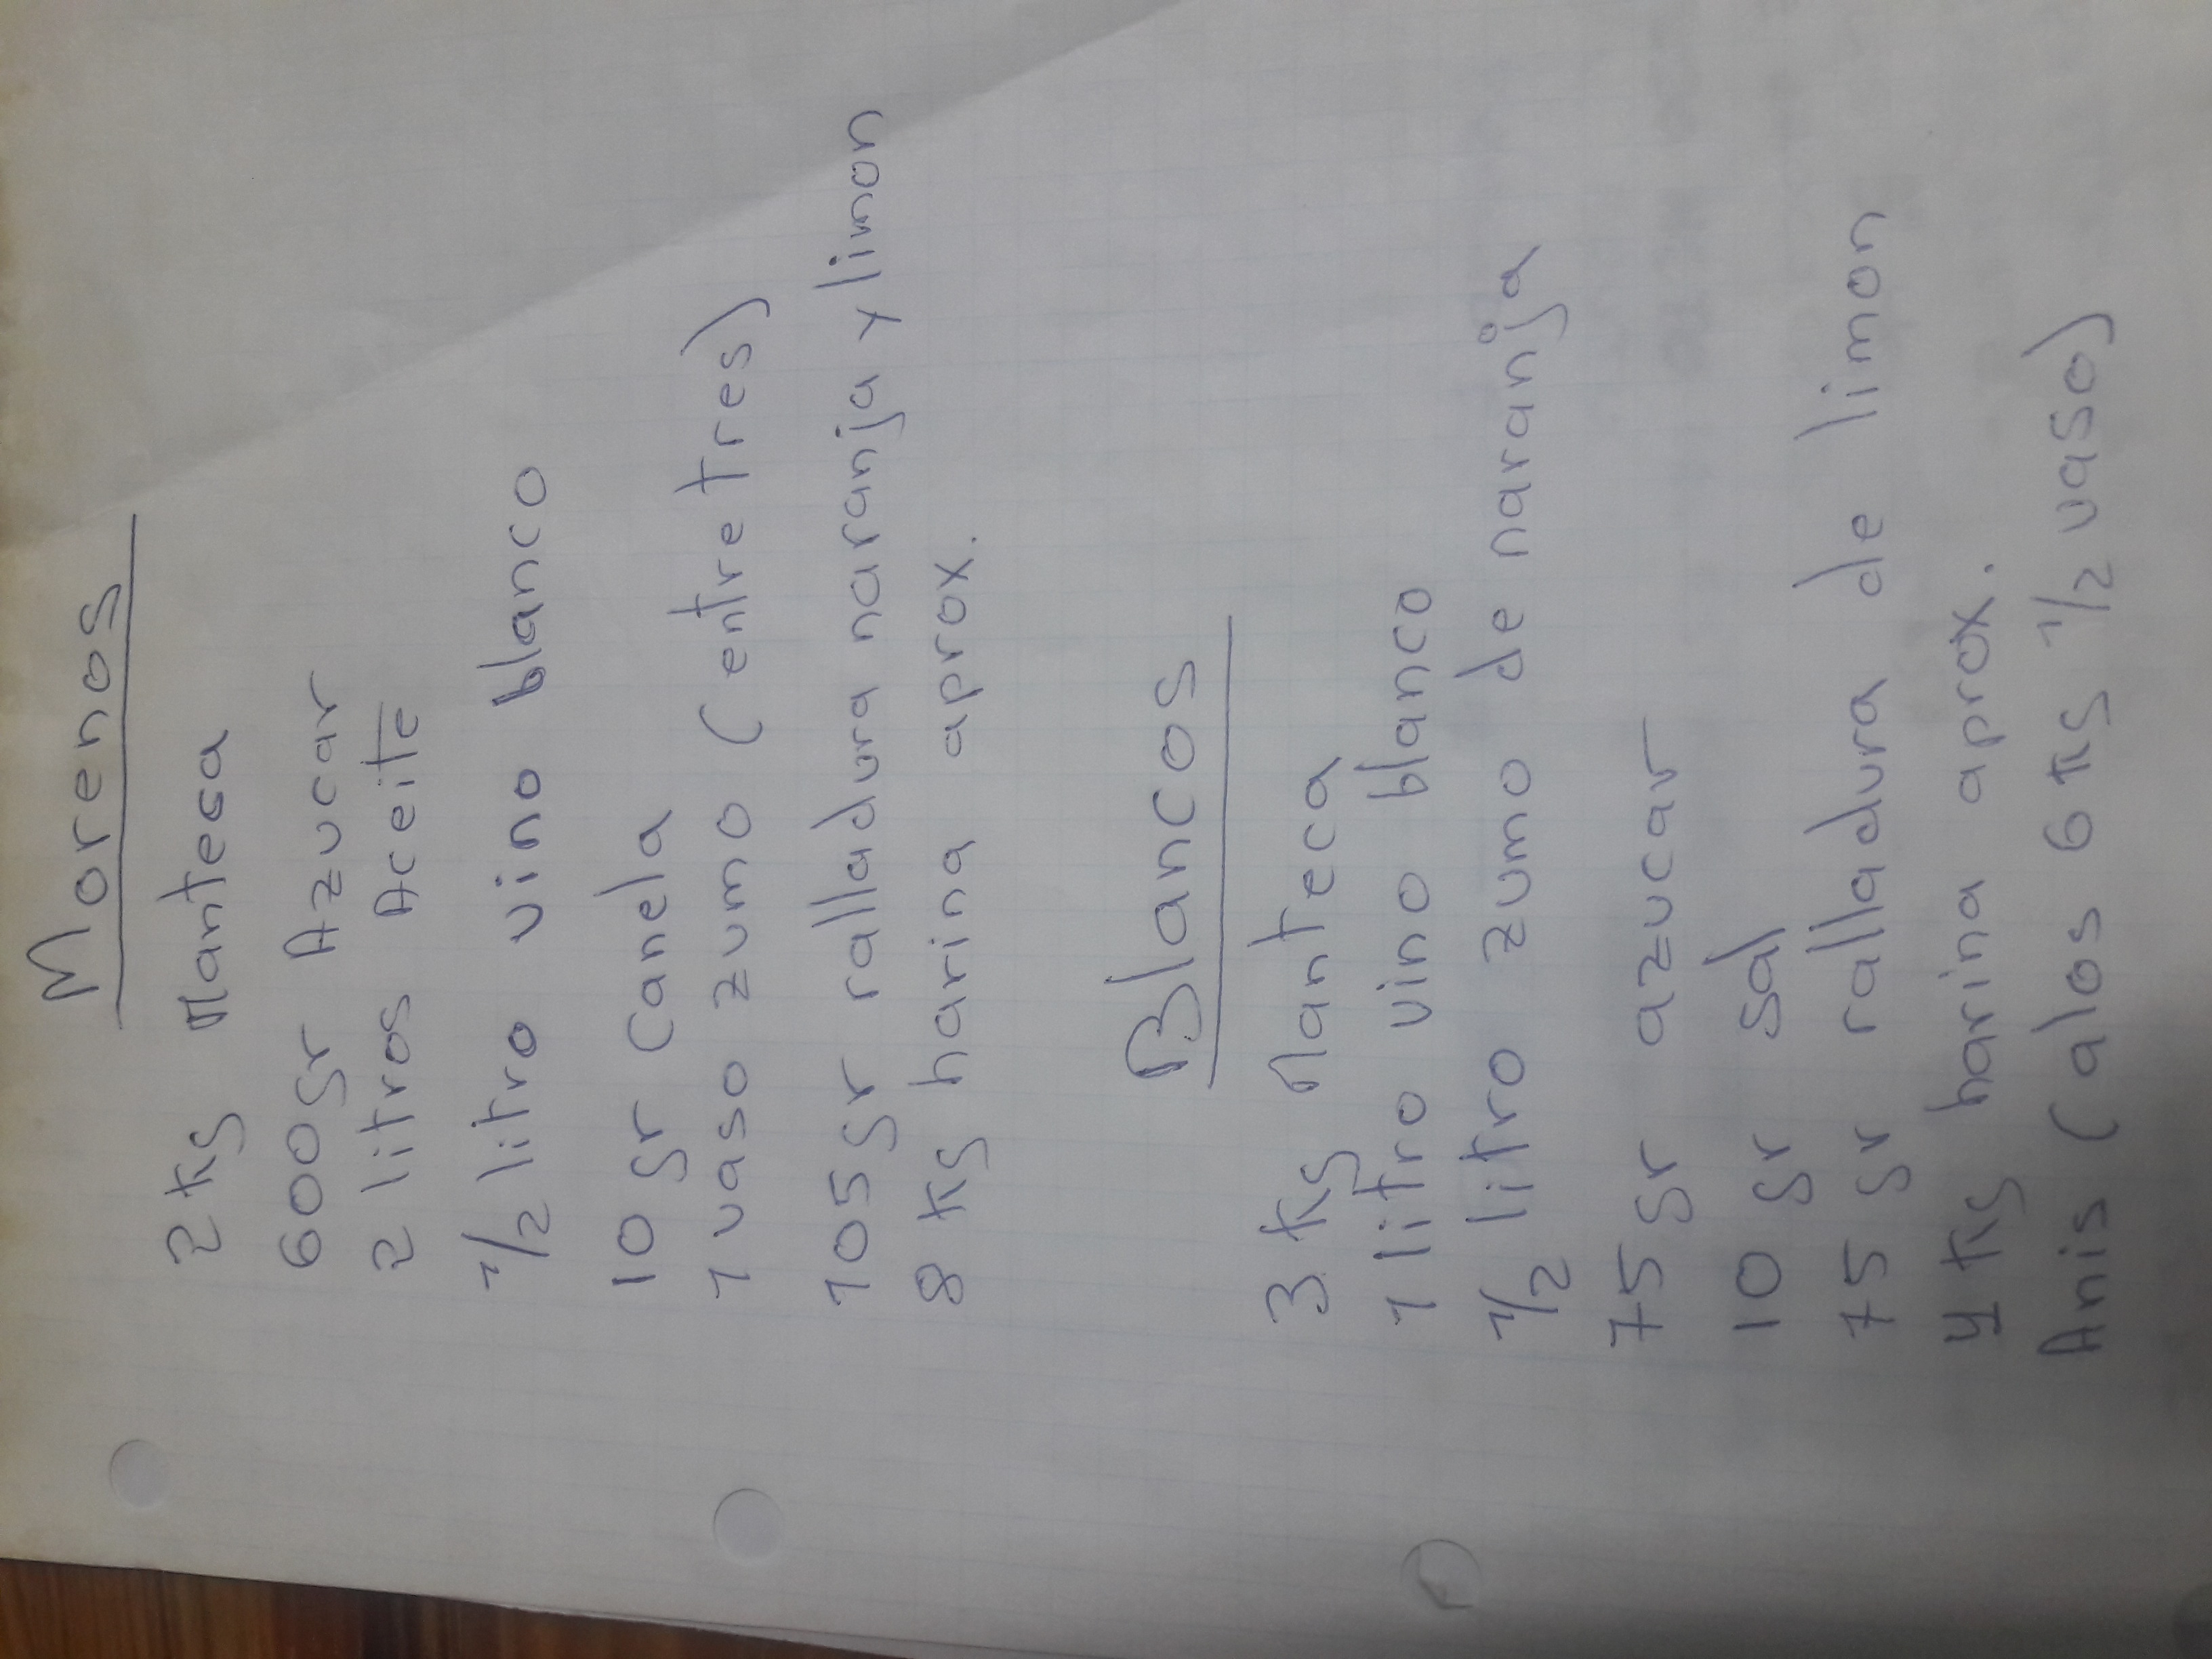 Morenos
2 kg Manteca
600 gr Azucar
2 litros Aceite
1/2 litro vino blanco
10 gr Canela
1 vaso zumo (entre tres)
105 gr ralladura naranja y limon
8 kg harina aprox.
Blancos
3 kg Manteca
1 litro vino blanco
1/2 litro zumo de naranja
75 gr azucar
10 gr sal
75 gr ralladura de limon
4 kg harina aprox.
Anis (alos 6 kg 1/2 vaso)